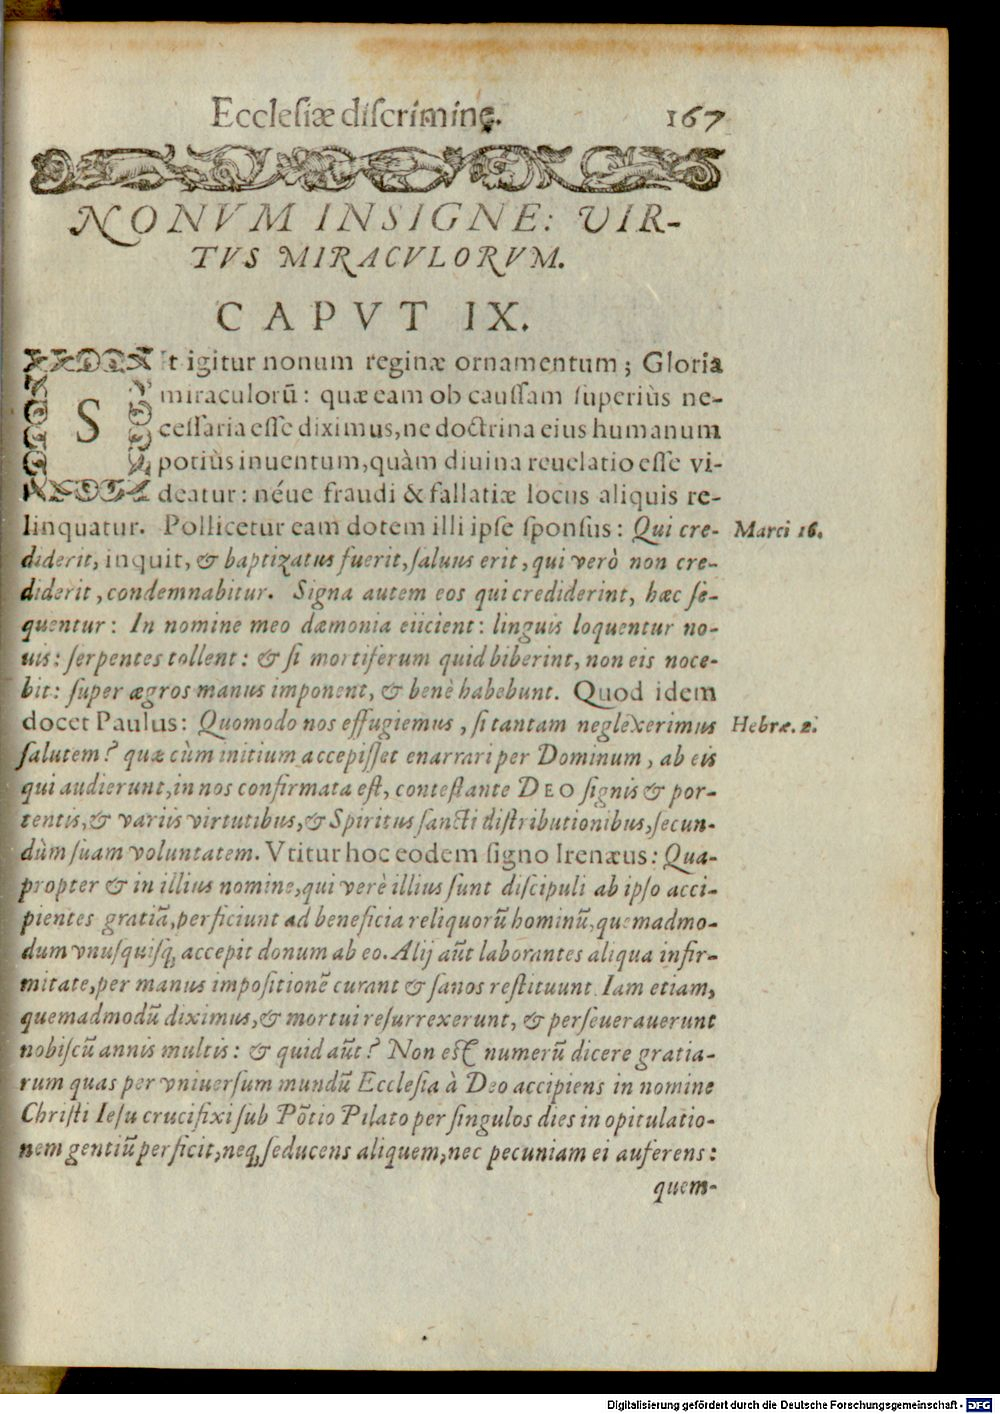 Ecclesiæ discrimine. 167
NONVM INSIGNE: VIR-
TVS MIRACVLORVM.
CAPVT IX.
St igitur nonum reginæ ornamentum; Gloria
miraculorũ: quæ eam ob caussam superiùs ne-
cessaria esse diximus, ne doctrina eius humanum
potiùs inuentum, quàm diuina reuelatio esse vi-
deatur: néue fraudi & fallatiæ locus aliquis re-
linquatur. Pollicetur eam dotem illi ipse sponsus: Qui cre- Marci 16.
diderit, inquit, & baptizatus fuerit, saluus erit, qui verò non cre-
diderit, condemnabitur. Signa autem eos qui crediderint, hæc se-
quentur: In nomine meo dæmonia eiicient: linguis loquentur no-
uis: serpentes tollent: & si mortiferum quid biberint, non eis noce-
bit: super ægros manus imponent, & benè habebunt. Quod idem
docet Paulus: Quomodo nos effugiemus, si tantam neglexerimus Hebræ. 2.
salutem? quæ cùm initium accepisset enarrari per Dominum, ab eis
qui audierunt, in nos confirmata est, contestante DEO signis & por-
tentis, & variis virtutibus, & Spiritus sancti distributionibus, secun-
dùm suam voluntatem. Vtitur hoc eodem signo Irenæus: Qua-
propter & in illius nomine, qui verè illius sunt discipuli ab ipso acci-
pientes gratiã, perficiunt ad beneficia reliquorũ hominũ, quemadmo-
dum vnusquisq; accepit donum ab eo. Alij aũt laborantes aliqua infir-
mitate, per manus impositionẽ curant & sanos restituunt. Iam etiam,
quemadmodũ diximus, & mortui resurrexerunt, & perseuerauerunt
nobiscũ annis multis: & quid aũt? Non est numerũ dicere gratia-
rum quas per vniuersum mundũ Ecclesia à Deo accipiens in nomine
Christi Iesu crucifixi sub Põtio Pilato per singulos dies in opitulatio-
nem gentiũ perficit, neq; seducens aliquem, nec pecuniam ei auferens:
quem-
Digitalisierung gefördert durch die Deutsche Forschungsgemeinschaft - DFG